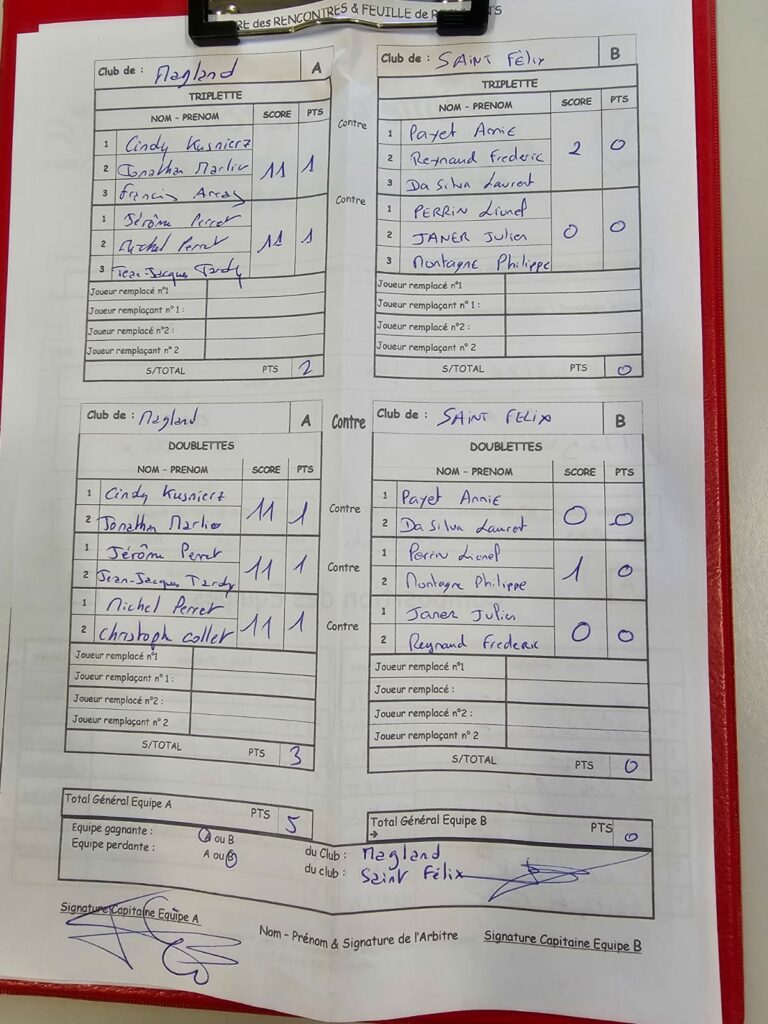 RE des RENCONTRES & FEUILLE de R
Club de : Magland A
TRIPLETTE
NOM - PRENOM SCORE PTS
1 Cindy Kusnierz
2 Jonathan Marlio 11 1
3 Francis
1 Jérôme Perret
2 Michel Perret 11 1
3 Jean-Jacques Tardy
Joueur remplacé n°1
Joueur remplaçant n° 1 :
Joueur remplacé n°2 :
Joueur remplaçant n° 2
S/TOTAL PTS 2
Contre
Contre
Club de : SAINT FÈLIX B
TRIPLETTE
NOM - PRENOM SCORE PTS
1 Payet Annie
2 Reynaud Frederic 2 0
3 Da Silva Laurent
1 PERRIN Lionel
2 JANER Julien 0 0
3 Montagne Philippe
Joueur remplacé n°1
Joueur remplaçant n° 1 :
Joueur remplacé n°2 :
Joueur remplaçant n° 2
S/TOTAL PTS 0
Club de : Magland A
DOUBLETTES
NOM - PRENOM SCORE PTS
1 Cindy Kusnierz
2 Jonathan Marlio 11 1
1 Jérôme Perret
2 Jean-Jacques Tardy 11 1
1 Michel Perret
2 christoph collet 11 1
Joueur remplacé n°1
Joueur remplaçant n° 1 :
Joueur remplacé n°2 :
Joueur remplaçant n° 2
S/TOTAL PTS 3
Contre
Contre
Contre
Contre
Club de : SAINT FELIX B
DOUBLETTES
NOM - PRENOM SCORE PTS
1 Payet Annie
2 Da Silva Laurent 0 0
1 Perrin Lionel
2 Montagne Philippe 1 0
1 Janer Julien
2 Reynaud Frederic 0 0
Joueur remplacé n°1
Joueur remplaçant :
Joueur remplacé n°2 :
Joueur remplaçant n° 2
S/TOTAL PTS 0
Total Général Equipe A PTS 5
Total Général Equipe B PTS 0
Equipe gagnante : A ou B du Club : Magland
Equipe perdante : A ou B du club : Saint Félix
Signature Capitaine Equipe A
Nom - Prénom & Signature de l'Arbitre
Signature Capitaine Equipe B